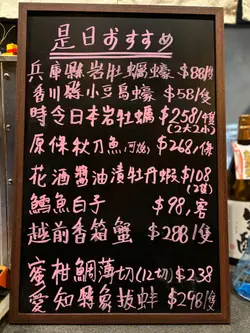 是日おすすめ
兵庫縣岩牡蠣蠔 $88/隻
香川縣小豆島蠔 $58/隻
時令日本岩牡蠣 $258/4隻
(2大2小)
原條秋刀魚(河燒) $268/條
花酒醬油漬牡丹蝦 $108
(2隻)
鱈魚白子 $98/客
越前香箱蟹 $288/隻
蜜柑鯛薄切(12切) $238
愛知縣象拔蚌 $298/隻